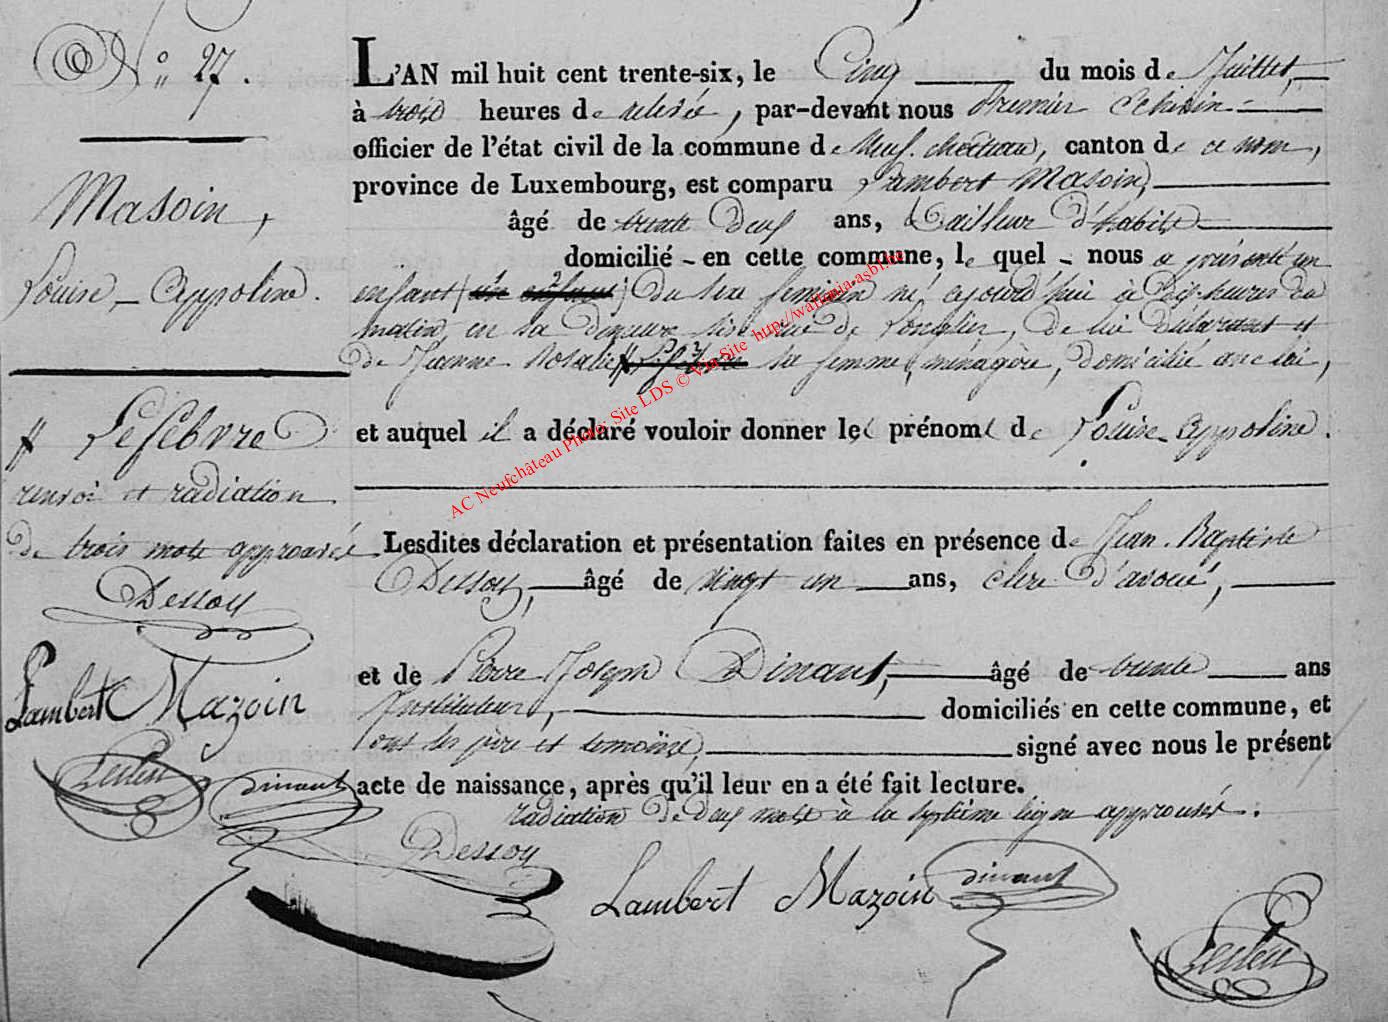 N° 27.
Masoin,
Louise-Appoline.
ff Lefebvre
renvoi et radiation
de trois mots approuvés
Dessoy
Lambert Mazoin
Dinant
L'AN mil huit cent trente-six, le Cinq du mois de Juillet,
à trois heures de relevée, par-devant nous Premier Echevin
officier de l'état civil de la commune de Neufchâteau, canton de ce nom,
province de Luxembourg, est comparu Lambert Masoin,
âgé de trente deux ans, Tailleur d'habits
domicilié - en cette commune, le quel - nous a présenté un
enfant un enfant du sexe féminin né cejourd'hui à dix heures du
matin, en sa demeure sise rue de Longlier, de lui déclarant et
de Jeanne Rosalie ff sa femme, ménagère, domicilié avec lui,
et auquel il a déclaré vouloir donner les prénoms de Louise-Appoline.
Lesdites déclaration et présentation faites en présence de Jean-Baptiste
Dessoy, âgé de vingt un ans, clerc d'avoué,
et de Pierre Joseph Dinant, âgé de trente ans
Instituteur, domiciliés en cette commune, et
ont les père et témoins, signé avec nous le présent
acte de naissance, après qu'il leur en a été fait lecture.
radiation de deux mots à la septième ligne approuvée.
Dessoy
Lambert Mazoin
Dinant
AC Neufchâteau Photo: Site LDS © Via Site http://wallonia-asbl.be